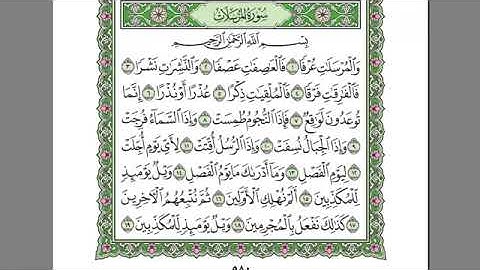 سُورَةُ المُرْسَلَات
بِسْمِ اللَّهِ الرَّحْمَٰنِ الرَّحِيمِ
وَالْمُرْسَلَاتِ عُرْفًا ١ فَالْعَاصِفَاتِ عَصْفًا ٢ وَالنَّاشِرَاتِ نَشْرًا ٣
فَالْفَارِقَاتِ فَرْقًا ٤ فَالْمُلْقِيَاتِ ذِكْرًا ٥ عُذْرًا أَوْ نُذْرًا ٦ إِنَّمَا
تُوعَدُونَ لَوَاقِعٌ ٧ فَإِذَا النُّجُومُ طُمِسَتْ ٨ وَإِذَا السَّمَاءُ فُرِجَتْ
٩ وَإِذَا الْجِبَالُ نُسِفَتْ ١٠ وَإِذَا الرُّسُلُ أُقِّتَتْ ١١ لِأَيِّ يَوْمٍ أُجِّلَتْ
١٢ لِيَوْمِ الْفَصْلِ ١٣ وَمَا أَدْرَاكَ مَا يَوْمُ الْفَصْلِ ١٤ وَيْلٌ يَوْمَئِذٍ
لِلْمُكَذِّبِينَ ١٥ أَلَمْ نُهْلِكِ الْأَوَّلِينَ ١٦ ثُمَّ نُتْبِعُهُمُ الْآخِرِينَ
١٧ كَذَٰلِكَ نَفْعَلُ بِالْمُجْرِمِينَ ١٨ وَيْلٌ يَوْمَئِذٍ لِلْمُكَذِّبِينَ ١٩
٥٨٠